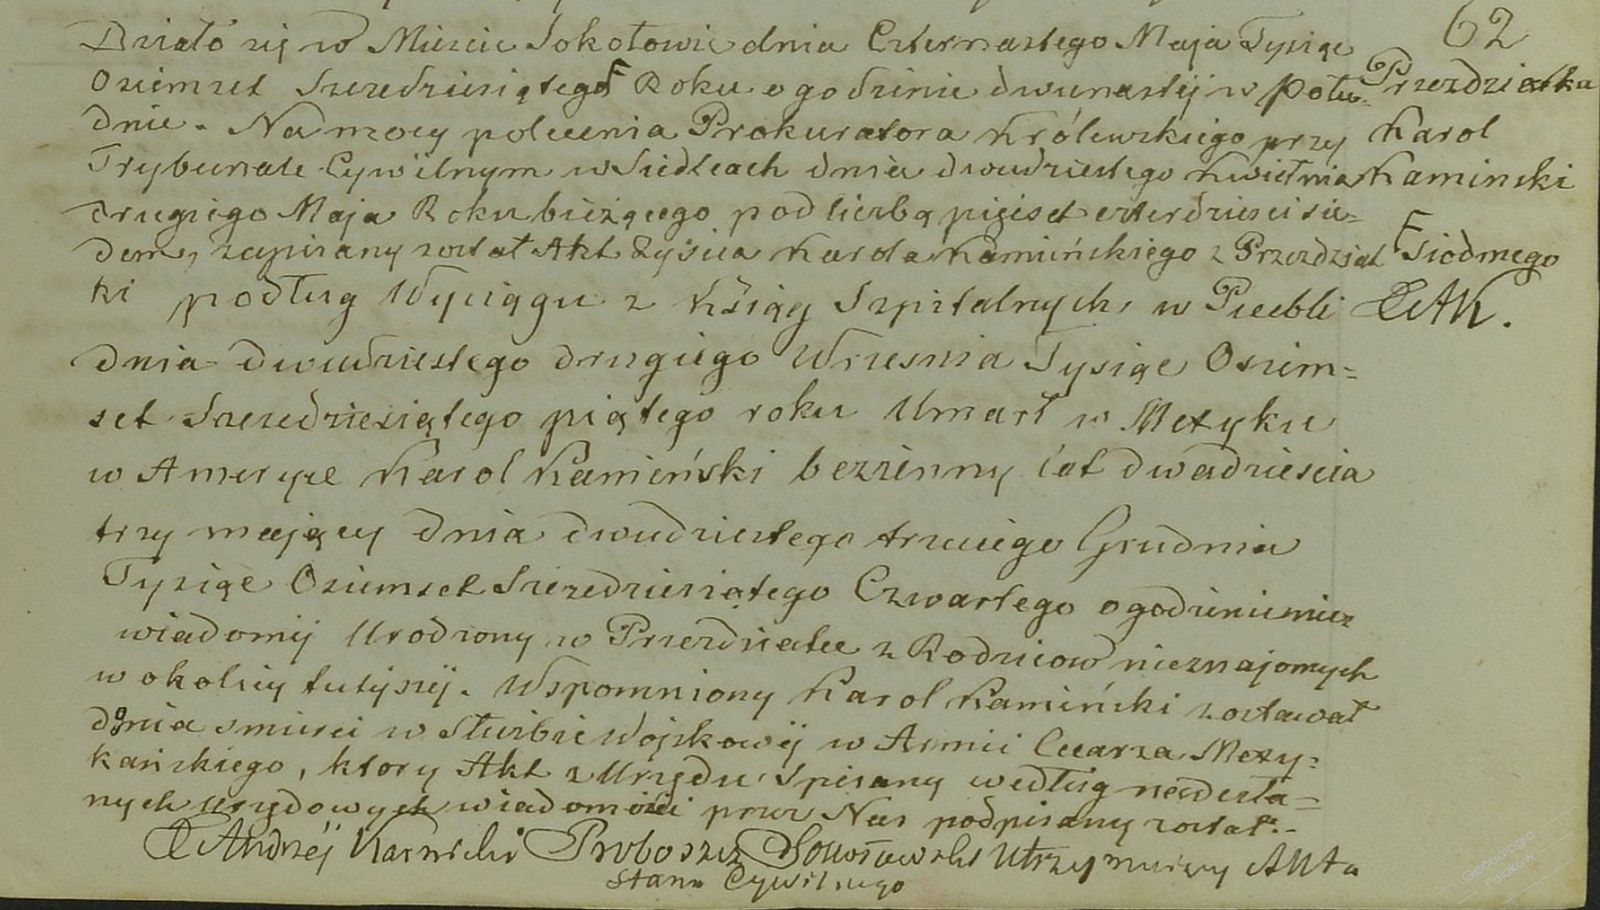 62
Przezdziatka
Karol
Kaminski
Działo się w Miescie Sokołowie dnia Czternastego Maja Tysiąc
Osiemset Szesdziesiątego Ƒ Roku o godzinie dwunastéj w Połu-
dnie. Na mocy polecenia Prokuratora Królewskiego przy
Trybunale Cywilnym w Siedlcach dnia dwudziestego Kwietnia
drugiego Maja Roku bieżącego pod liczbą pięćset czterdziesci sie-
dem, zapisany został Akt Zyścia Karola Kamińskiego z Przezdziat
ki podług Wyciągu z Ksiąg Szpitalnych, w Puebli
dnia dwudziestego drugiego Wrzesnia Tysiąc Osiem-
set Szesdziesiątego piątego roku Umarł w Mexyku
w Ameryce Karol Kamiński bezżenny lat dwadziescia
trzy mający dnia dwudziestego trzeciego Grudnia
Tysiąc Osiemset Szesdziesiątego Czwartego o godzinie nie
wiadoméj Urodzony w Przezdziatce z Rodzicow nieznajomych
w okolicy tutejszéj. Wspomniony Karol Kamiński zostawał
do dnia smierci w Służbie Wojskowéj w Armii Cesarza Mexy-
kańskiego, ktory Akt z Urzędu Spisany według nadesła-
nych Urzędowych wiadomości przez Nas podpisany został.-
X Andrzéj Karnicki Proboszcz Sokołowski Utrzymujący Akta
Stanu Cywilnego
Ƒ siódmego
XAK.
Genealogia
Polaków